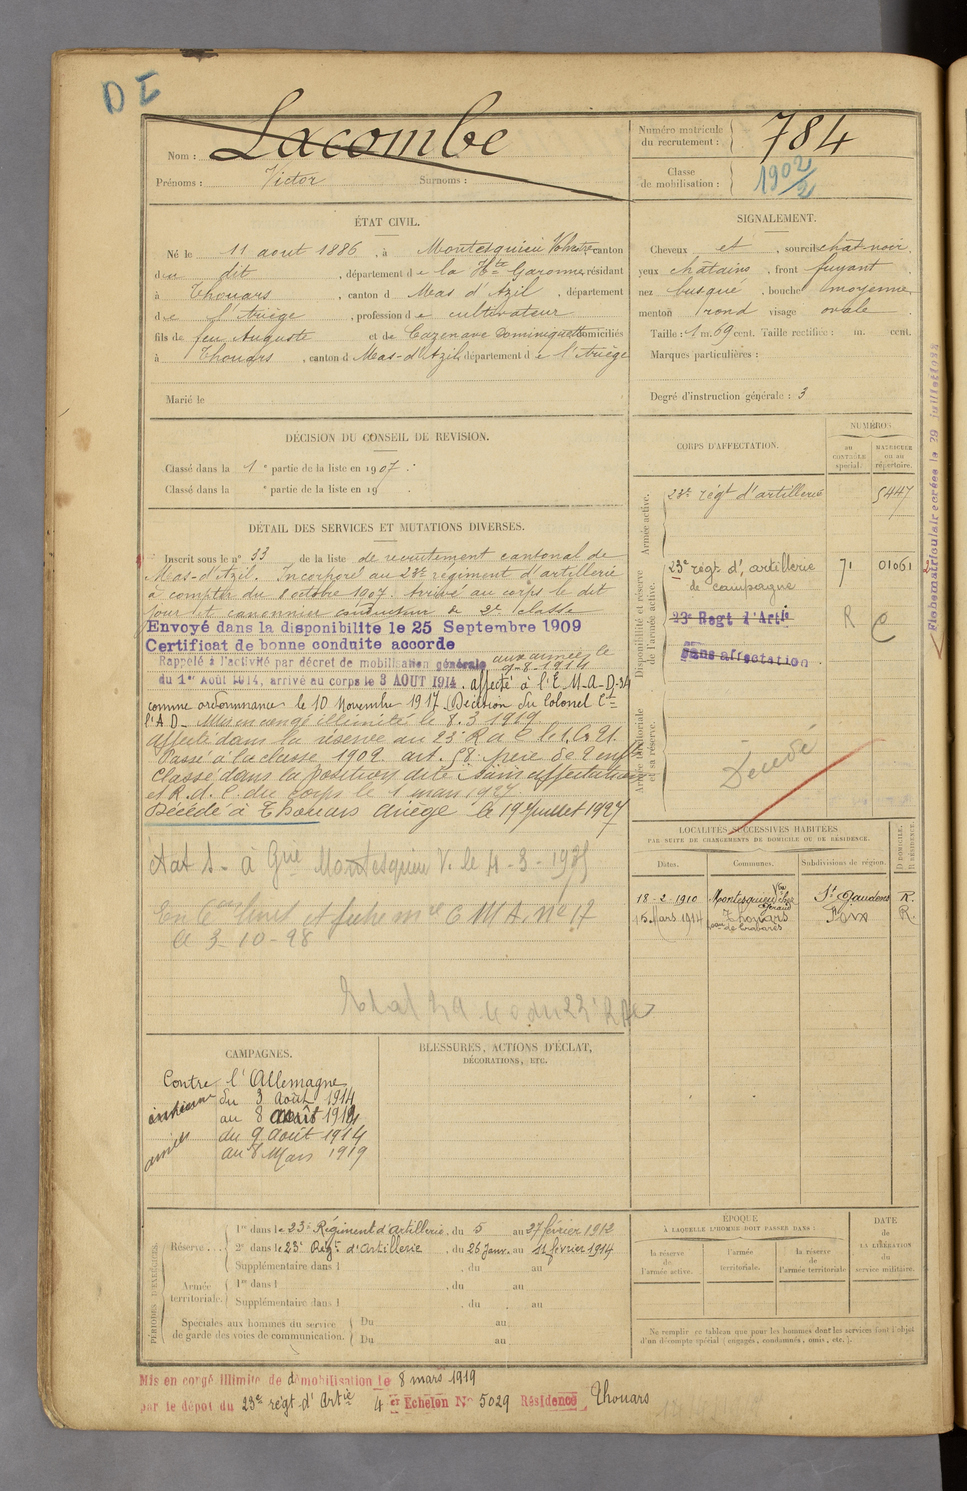 D I
Nom : Lacombe
Prénoms : Victor Surnoms :
Numéro matricule du recrutement : 784
Classe de mobilisation : 1902/2
ÉTAT CIVIL.
Né le 11 aout 1886, à Montesquieu Volvestre, canton
du dit, département de la Hte Garonne, résidant
à Thouars, canton d Mas d'Azil, département
de l'Ariège, profession de cultivateur
fils de feu Auguste et de Cazenave Dominiquette domiciliés
à Thouars, canton d Mas-d'Azil, département de l'Ariège
Marié le
SIGNALEMENT.
Cheveux et, sourcils chat-noir
yeux châtains, front fuyant
nez busqué, bouche moyenne,
menton rond visage ovale
Taille : 1 m. 69 cent. Taille rectifiée : m. cent.
Marques particulières :
Degré d'instruction générale : 3
DÉCISION DU CONSEIL DE REVISION.
Classé dans la 1e partie de la liste en 1907.
Classé dans la e partie de la liste en 19
DÉTAIL DES SERVICES ET MUTATIONS DIVERSES.
Inscrit sous le n° 33 de la liste de recrutement cantonal de
Mas-d'Azil. Incorporé au 23e régiment d'artillerie
à compter du 8 octobre 1907. Arrivé au corps le dit
jour dit canonnier conducteur de 2e classe
Envoyé dans la disponibilite le 25 Septembre 1909
Certificat de bonne conduite accorde
Rappelé à l'activité par décret de mobilisation générale aux armées le 9-8-1914
du 1er Août 1914, arrivé au corps le 3 AOUT 1914. affecté à l'E.M.A.D-34
comme ordonnance le 10 Novembre 1917 (Décision du Colonel Ct
l'A D. Mis en congé illimité le 8.3.1919
Affecté dans la réserve au 23 R a C
Passé à la classe 1902. art. 58. père de 2 enfts
Classé dans la position dite "Sans affectation
et R. d. C. du corps le 1 mars 1927.
Décédé à Thouars Ariège le 19 Juillet 1927
à Gnie Montesquieu V. le 4-3-
livret et fiche mle C M A. No 17
a 3-10-98
CORPS D'AFFECTATION.
NUMÉROS
au CONTRÔLE spécial.
MATRICULE ou au répertoire.
Armée active.
23e régt d'artillerie 5447
Disponibilité et réserve de l'armée active.
23e régt d'artillerie de campagne 71 01061
23e Regt d'Artie R C
Sans affectation
Armée territoriale et sa réserve.
Décédé
LOCALITÉS SUCCESSIVES HABITÉES
PAR SUITE DE CHANGEMENTS DE DOMICILE OU DE RÉSIDENCE.
Dates. Communes. Subdivisions de région. D DOMICILE. R RÉSIDENCE.
18-2-1910 Montesquieu Vtre St Gaudens R.
15 Mars 1914 Thouars Foix R.
CAMPAGNES.
Contre l'Allemagne
intérieur du 3 Août 1914
au 8 août 1914
armées du 9 août 1914
au 8 Mars 1919
BLESSURES, ACTIONS D'ÉCLAT,
DÉCORATIONS, ETC.
PÉRIODES D'EXERCICES.
Réserve....
1re dans le 23e Régiment d'artillerie, du 5 au 27 février 1912
2e dans le 23e Régt d'Artillerie, du 26 Janv. au 11 février 1914
Supplémentaire dans l , du au
Armée territoriale.
1re dans l , du au
Supplémentaire dans l , du au
Spéciales aux hommes du service de garde des voies de communication.
Du au
Du au
ÉPOQUE
À LAQUELLE L'HOMME DOIT PASSER DANS :
la réserve de l'armée active.
l'armée territoriale.
la réserve de l'armée territoriale
DATE de LA LIBÉRATION du service militaire.
Ne remplir ce tableau que pour les hommes dont les services font l'objet
d'un décompte spécial (engagés, condamnés, omis, etc.).
Mis en congé illimité de démobilisation le 8 mars 1919
par le dépot du 23e régt d'Artie 4er Echelon No 5029 Résidence Thouars